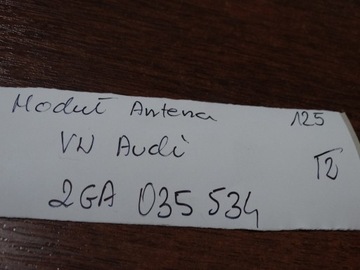 Moduł Antena 125
VW Audi T2
2GA 035 534